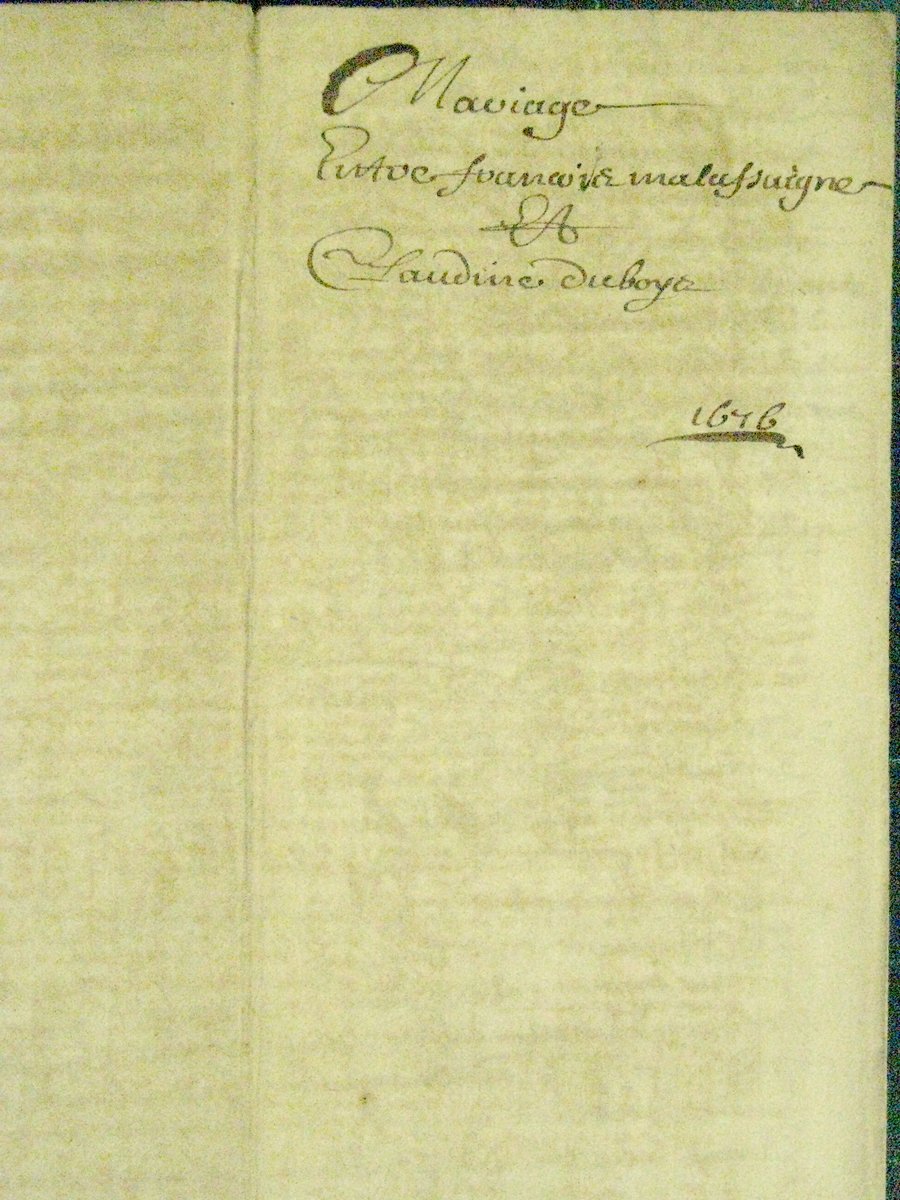 Mariage
Entre francois malassaigne
Et
Claudine duboys
1676